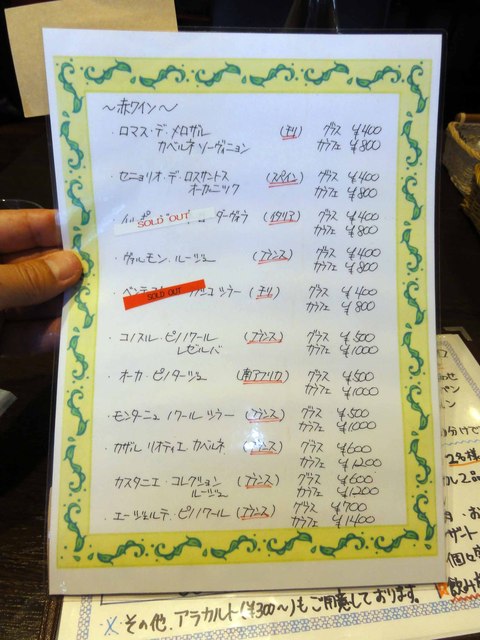 〜赤ワイン〜
・ロマス・デ・メロザル (チリ) グラス ¥400
カベルネ ソーヴィニョン カラフェ ¥800
・セニョリオ・デ・ロスサントス (スペイン) グラス ¥400
オーガニック カラフェ ¥800
SOLD OUT ダヴォラ (イタリア) グラス ¥400
カラフェ ¥800
・ヴァルモン・ルージュ (フランス) グラス ¥400
カラフェ ¥800
SOLD OUT (チリ) グラス ¥400
カラフェ ¥800
・コノスル・ピノノワール (フランス) グラス ¥500
レゼルバ カラフェ ¥1000
・オーカ・ピノタージュ (南アフリカ) グラス ¥500
カラフェ ¥1000
・モンターニュ ノワール シラー (フランス) グラス ¥500
カラフェ ¥1000
・カザル リオティエ カベルネ (フランス) グラス ¥600
カラフェ ¥1200
・カスタニエ・コレクション (フランス) グラス ¥600
ルージュ カラフェ ¥1200
・エージェルテ・ピノノワール (フランス) グラス ¥700
カラフェ ¥1400
2名様
2品
個々
飲み
・その他、アラカルト(¥300〜)もご用意しております。